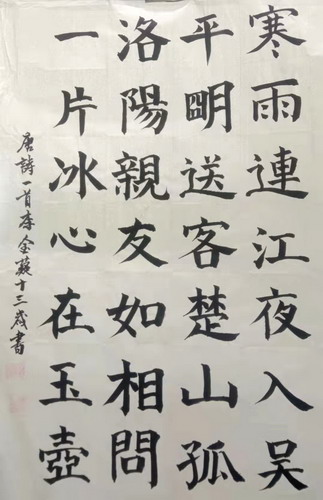 寒雨連江夜入吴
平明送客楚山孤
洛陽親友如相問
一片冰心在玉壺
唐詩一首李金十三歲書